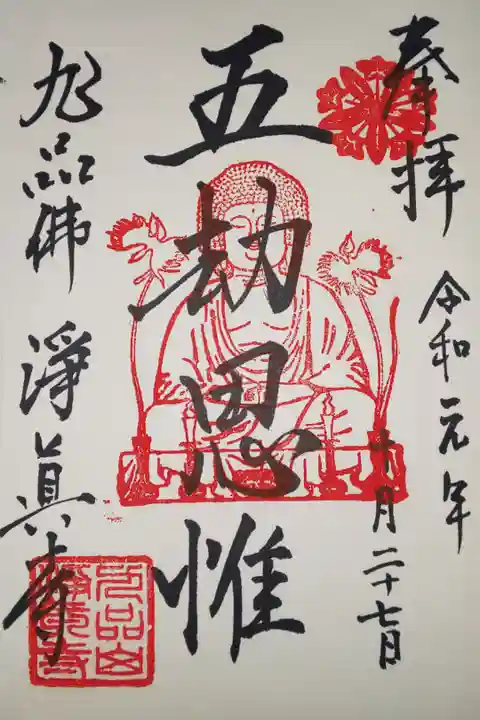 奉拝
令和元年
十月二十七日
五劫思惟
九品佛
淨眞寺